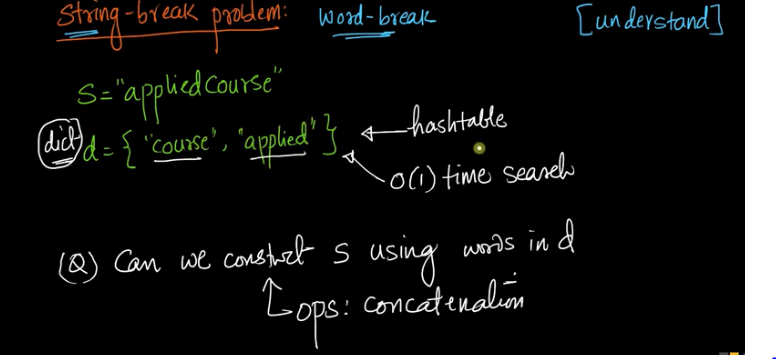 String-break problem: word-break [understand]
S="appliedCourse"
dict d={ "course", "applied" } hashtable
O(1) time search
(Q) Can we construct S using words in d
ops: concatenation